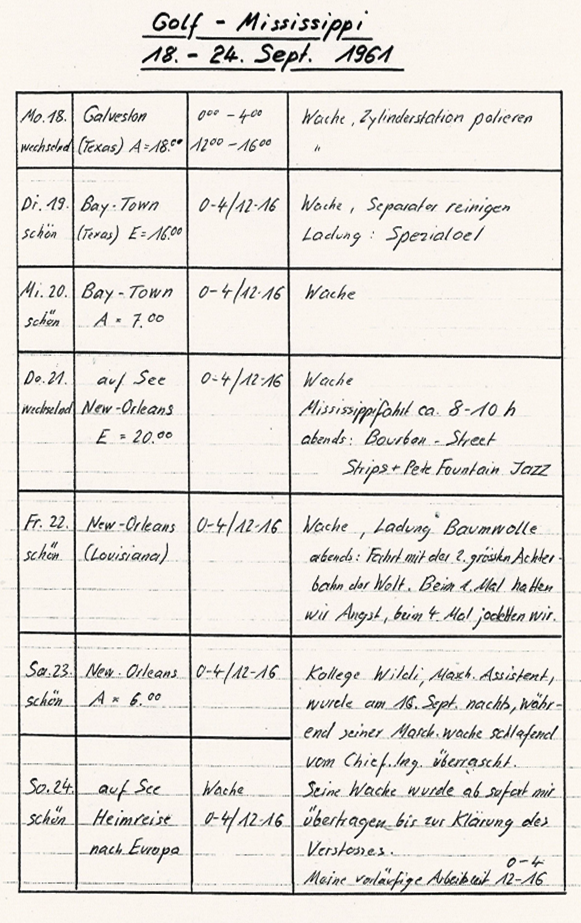 Golf - Mississippi
18. - 24. Sept. 1961
Mo. 18. Galveston 0⁰⁰ - 4⁰⁰ Wache, Zylinderstation polieren
wechselnd (Texas) A = 18.⁰⁰ 12⁰⁰ - 16⁰⁰ "
Di. 19. Bay-Town 0-4/12-16 Wache, Separator reinigen
schön (Texas) E = 16.⁰⁰ Ladung: Spezialoel
Mi. 20. Bay-Town 0-4/12-16 Wache
schön A = 7.⁰⁰
Do. 21. auf See 0-4/12-16 Wache
wechselnd New-Orleans Mississippifahrt ca. 8-10 h
E = 20.⁰⁰ abends: Bourbon - Street
Strips + Pete Fountain Jazz
Fr. 22. New-Orleans 0-4/12-16 Wache, Ladung Baumwolle
schön (Louisiana) abends: Fahrt mit der 2. grössten Achter-
bahn der Welt. Beim 1. Mal hatten
wir Angst, beim 4. Mal jodelten wir.
Sa. 23. New-Orleans 0-4/12-16 Kollege Wildi, Masch. Assistent,
schön A = 6.⁰⁰ wurde am 16. Sept. nachts, währ-
end seiner Masch. wache schlafend
vom Chief. Ing. überrascht.
So. 24. auf See Wache Seine Wache wurde ab sofort mir
schön Heimreise 0-4/12-16 übertragen bis zur Klärung des
nach Europa Verstosses.
0-4
Meine vorläufige Arbeitszeit 12-16